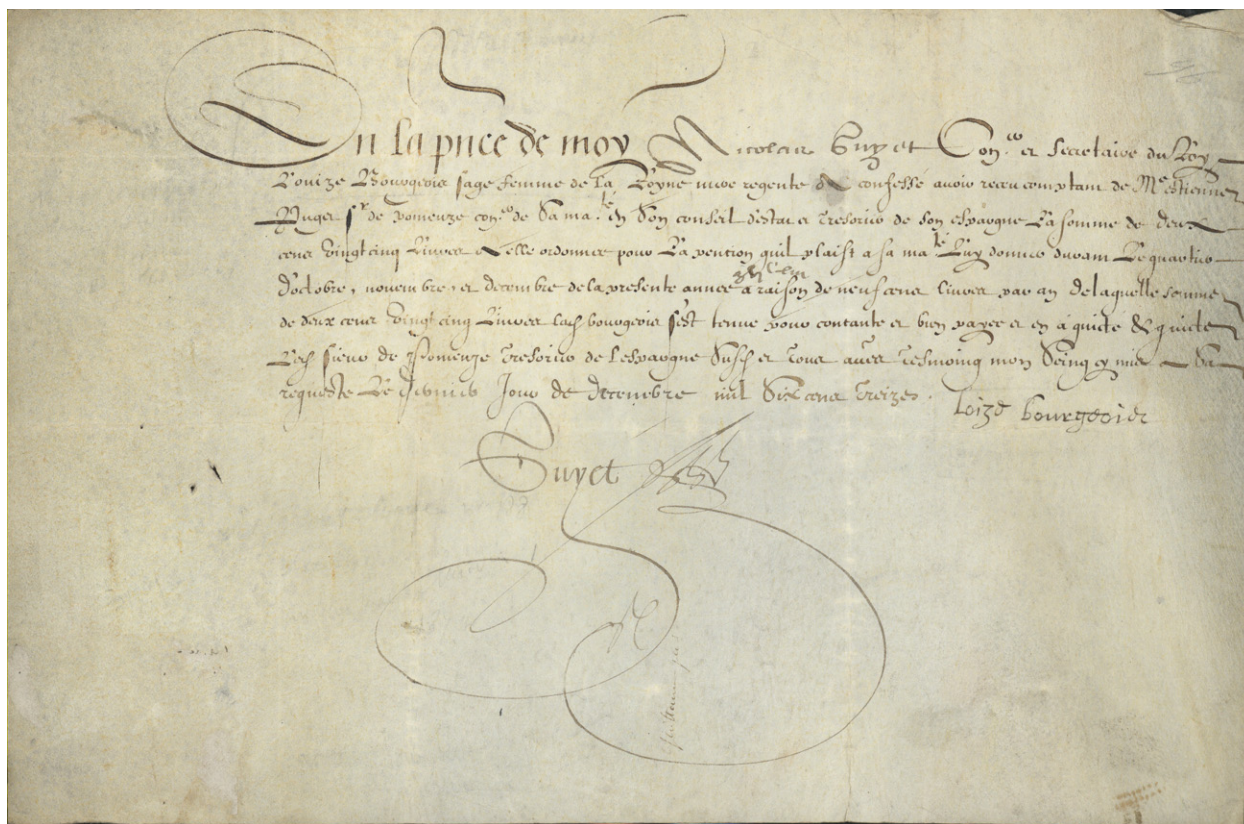 En la pnce de moy Nicolas Guyet Con.er et Secretaire du Roy
Louize Bourgeois sage femme de la Royne mere regente a confessé avoir receu comptant de Me Estienne
Puget Sr de Pomeuze con.er de Sa ma.té en Son conseil destat et Tresorier de son espargne La somme de deux
cens vingt cinq Livres a elle ordonnee pour La pention quil plaist a sa ma.té Luy donner durant Le quartier
doctobre, novembre, et decembre de la presente annee a raison de neuf cens livres par an de laquelle somme
de deux cens vingt cinq Livres lad bourgeois sest tenue pour contante et bien payee et en a quicté & quicte
Led sieur de Pomeuze Tresorier de Lespargne Susd et Tous autres Tesmoing mon Seing cy mis Sa
requeste Le jour de decembre mil Six cens Treize.
Loize bourgeois
Guyet